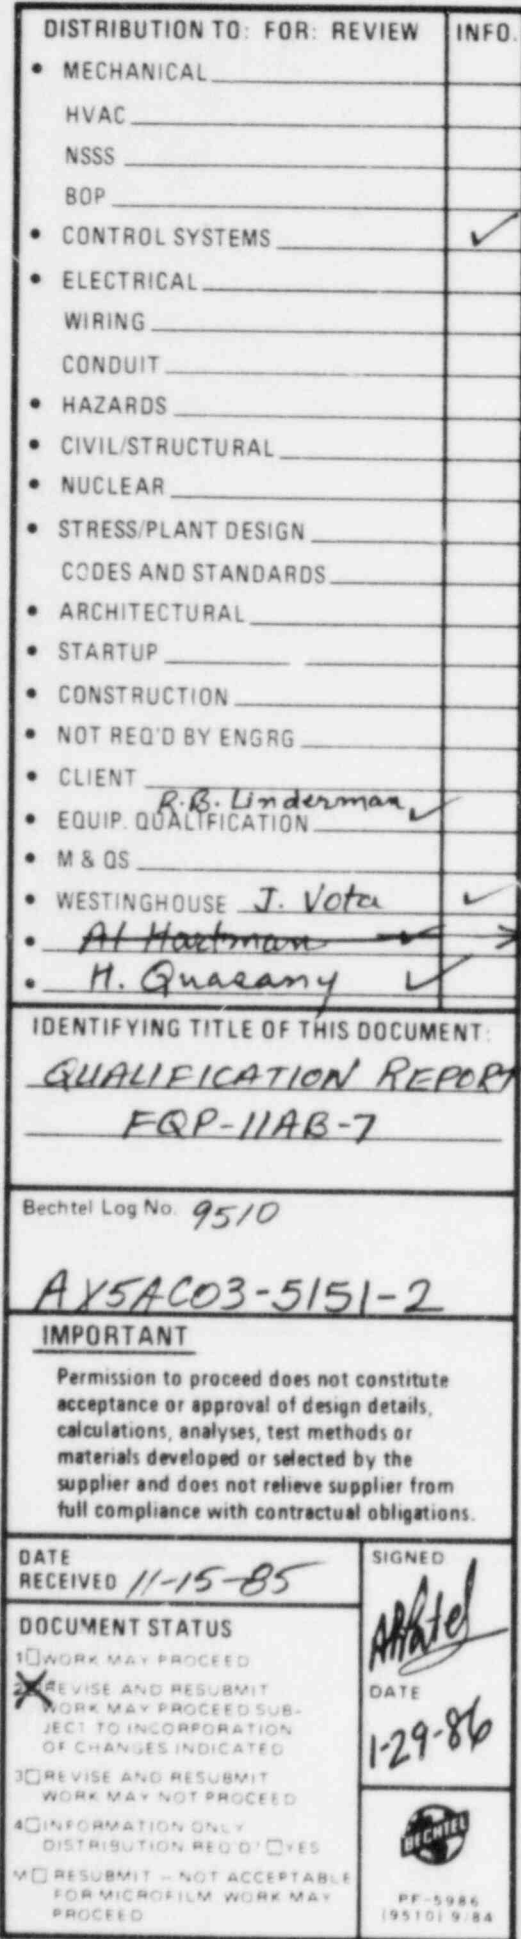 DISTRIBUTION TO: FOR: REVIEW INFO.
• MECHANICAL
HVAC
NSSS
BOP
• CONTROL SYSTEMS ✓
• ELECTRICAL
WIRING
CONDUIT
• HAZARDS
• CIVIL/STRUCTURAL
• NUCLEAR
• STRESS/PLANT DESIGN
CODES AND STANDARDS
• ARCHITECTURAL
• STARTUP
• CONSTRUCTION
• NOT REQ'D BY ENGRG
• CLIENT
R.B. Linderman ✓
• EQUIP. QUALIFICATION
• M & QS
• WESTINGHOUSE J. Vota ✓
• Al Hartman ✓
• H. Quasany ✓
IDENTIFYING TITLE OF THIS DOCUMENT:
QUALIFICATION REPORT
EQP-11AB-7
Bechtel Log No. 9510
AX5AC03-5151-2
IMPORTANT
Permission to proceed does not constitute
acceptance or approval of design details,
calculations, analyses, test methods or
materials developed or selected by the
supplier and does not relieve supplier from
full compliance with contractual obligations.
DATE
RECEIVED 11-15-85
DOCUMENT STATUS
1 □ WORK MAY PROCEED
2 ☒ REVISE AND RESUBMIT
WORK MAY PROCEED SUB-
JECT TO INCORPORATION
OF CHANGES INDICATED
3 □ REVISE AND RESUBMIT
WORK MAY NOT PROCEED
4 □ INFORMATION ONLY
DISTRIBUTION REQ'D? □ YES
M □ RESUBMIT – NOT ACCEPTABLE
FOR MICROFILM WORK MAY
PROCEED
SIGNED
ARPatel
DATE
1-29-86
BECHTEL
PF-5986
(9510) 9/84